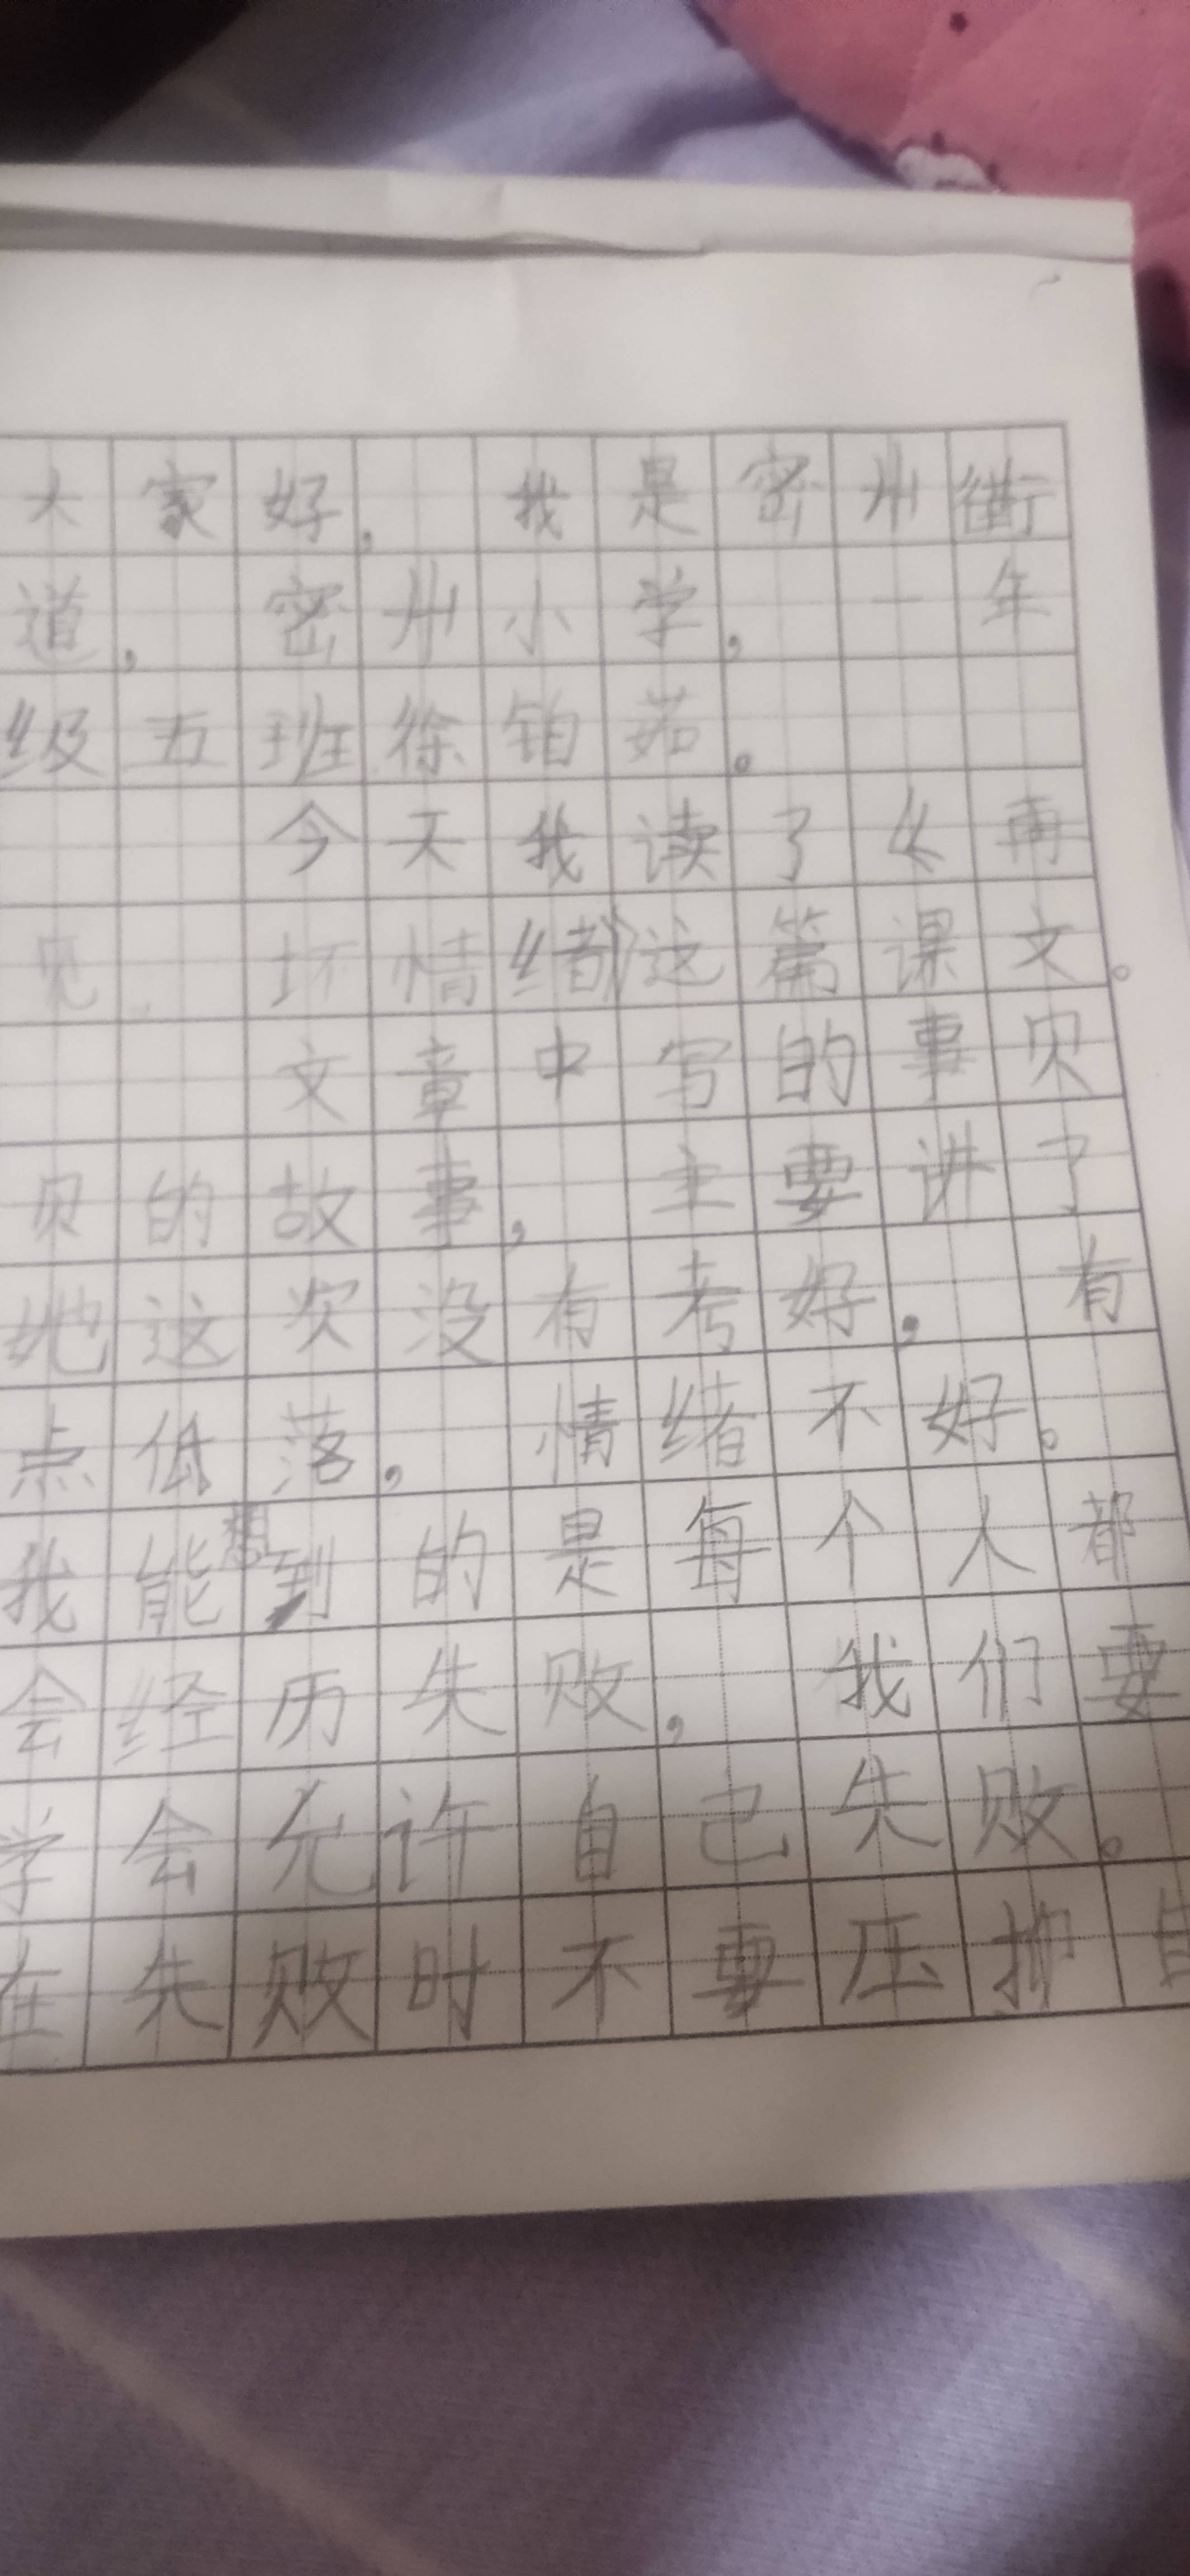 大家好，我是密州街
道，密州小学，一年
级五班徐铂茹。
今天我读了《再
见坏情绪》这篇课文。
文章中写的是贝
贝的故事，主要讲了
她这次没有考好，有
点低落，情绪不好。
我能想到的是每个人都
会经历失败，我们要
学会允许自己失败。
在失败时不要压抑自